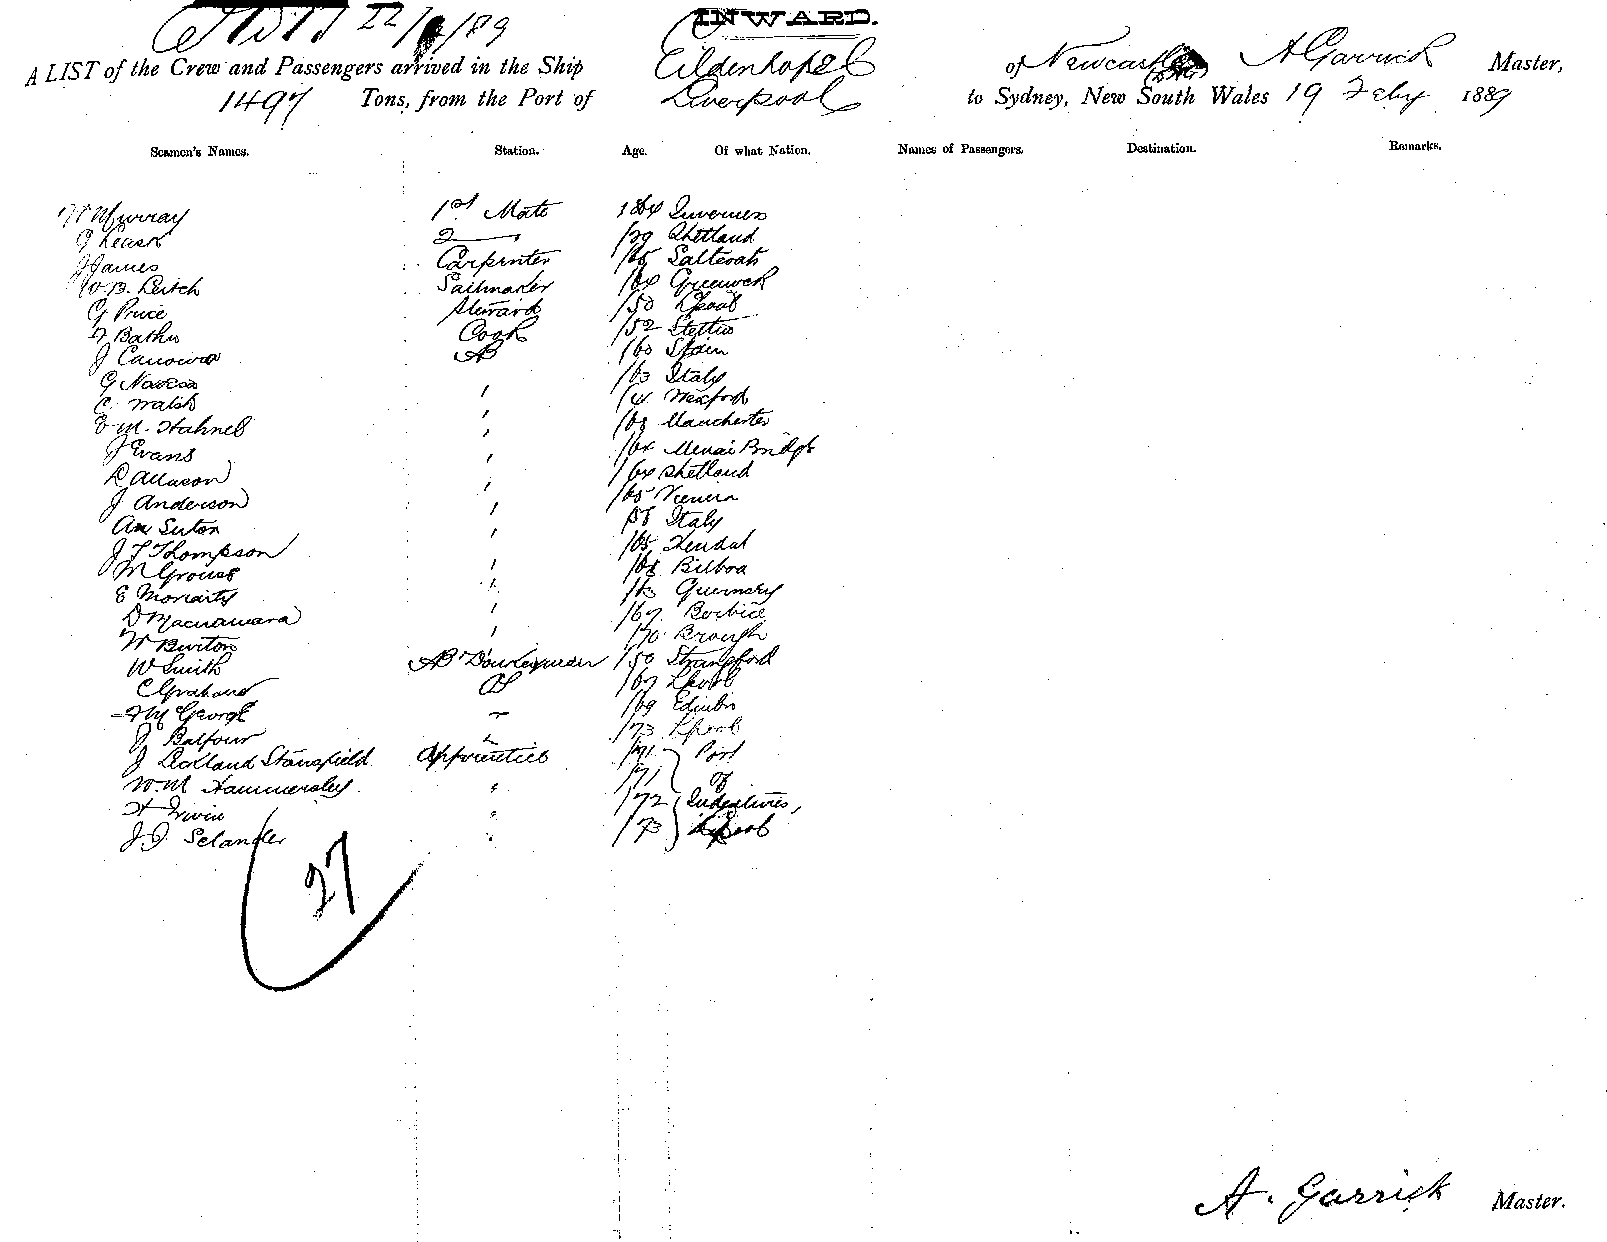 22/2/89
INWARD.
A LIST of the Crew and Passengers arrived in the Ship Eildenhope of Newcastle A Garrick Master,
1497 Tons, from the Port of Liverpool to Sydney, New South Wales 19 Feby 1889
Seamen's Names. Station. Age. Of what Nation. Names of Passengers. Destination. Remarks.
W Murray 1st Mate Inverness
G Leask 2 /59 Shetland
J James Carpenter /65 Saltcoats
W.B. Leitch Sailmaker /64 Greenock
G Price Steward /50 Lpool
Cook /52 Stettin
J AB /60 Spain
G /63 Italy
C. Walsh Wexford
M. Hahnel Manchester
J Evans /64 Menai Bridge
/64 Shetland
J Anderson /65 Vienna
Italy
J T Thompson /65 Kendal
M Bilboa
E Moriarty /63 Guernsey
D Macnamara /67 Berbice
W Burton /70 Brough
W Smith AB Donkeyman /50 Strangford
C Graham OS /67 Lpool
George /69 Edinbro
J Balfour /73 Lpool
J Stansfield Apprentices /71 Port
W.M Hammersley /71 of
Irwin /72 Indentures,
J.J. Selander /73 Lpool
27
A. Garrick Master.